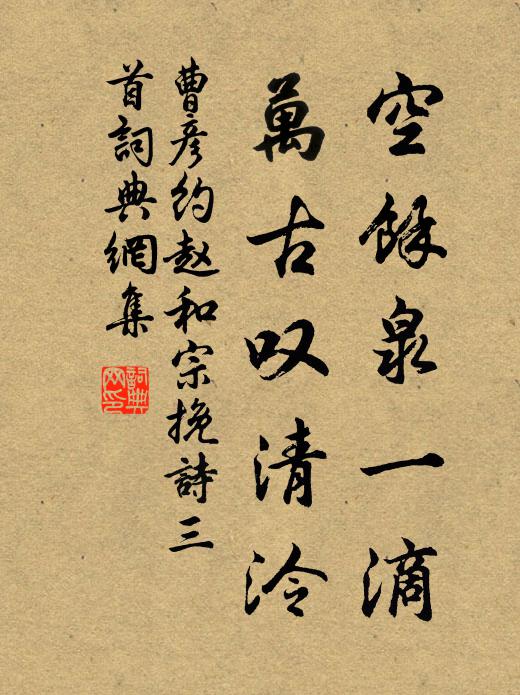 空餘泉一滴
萬古叹清泠
曹彦約赵和宗挽詩三
首詞典網集
詞典
网印